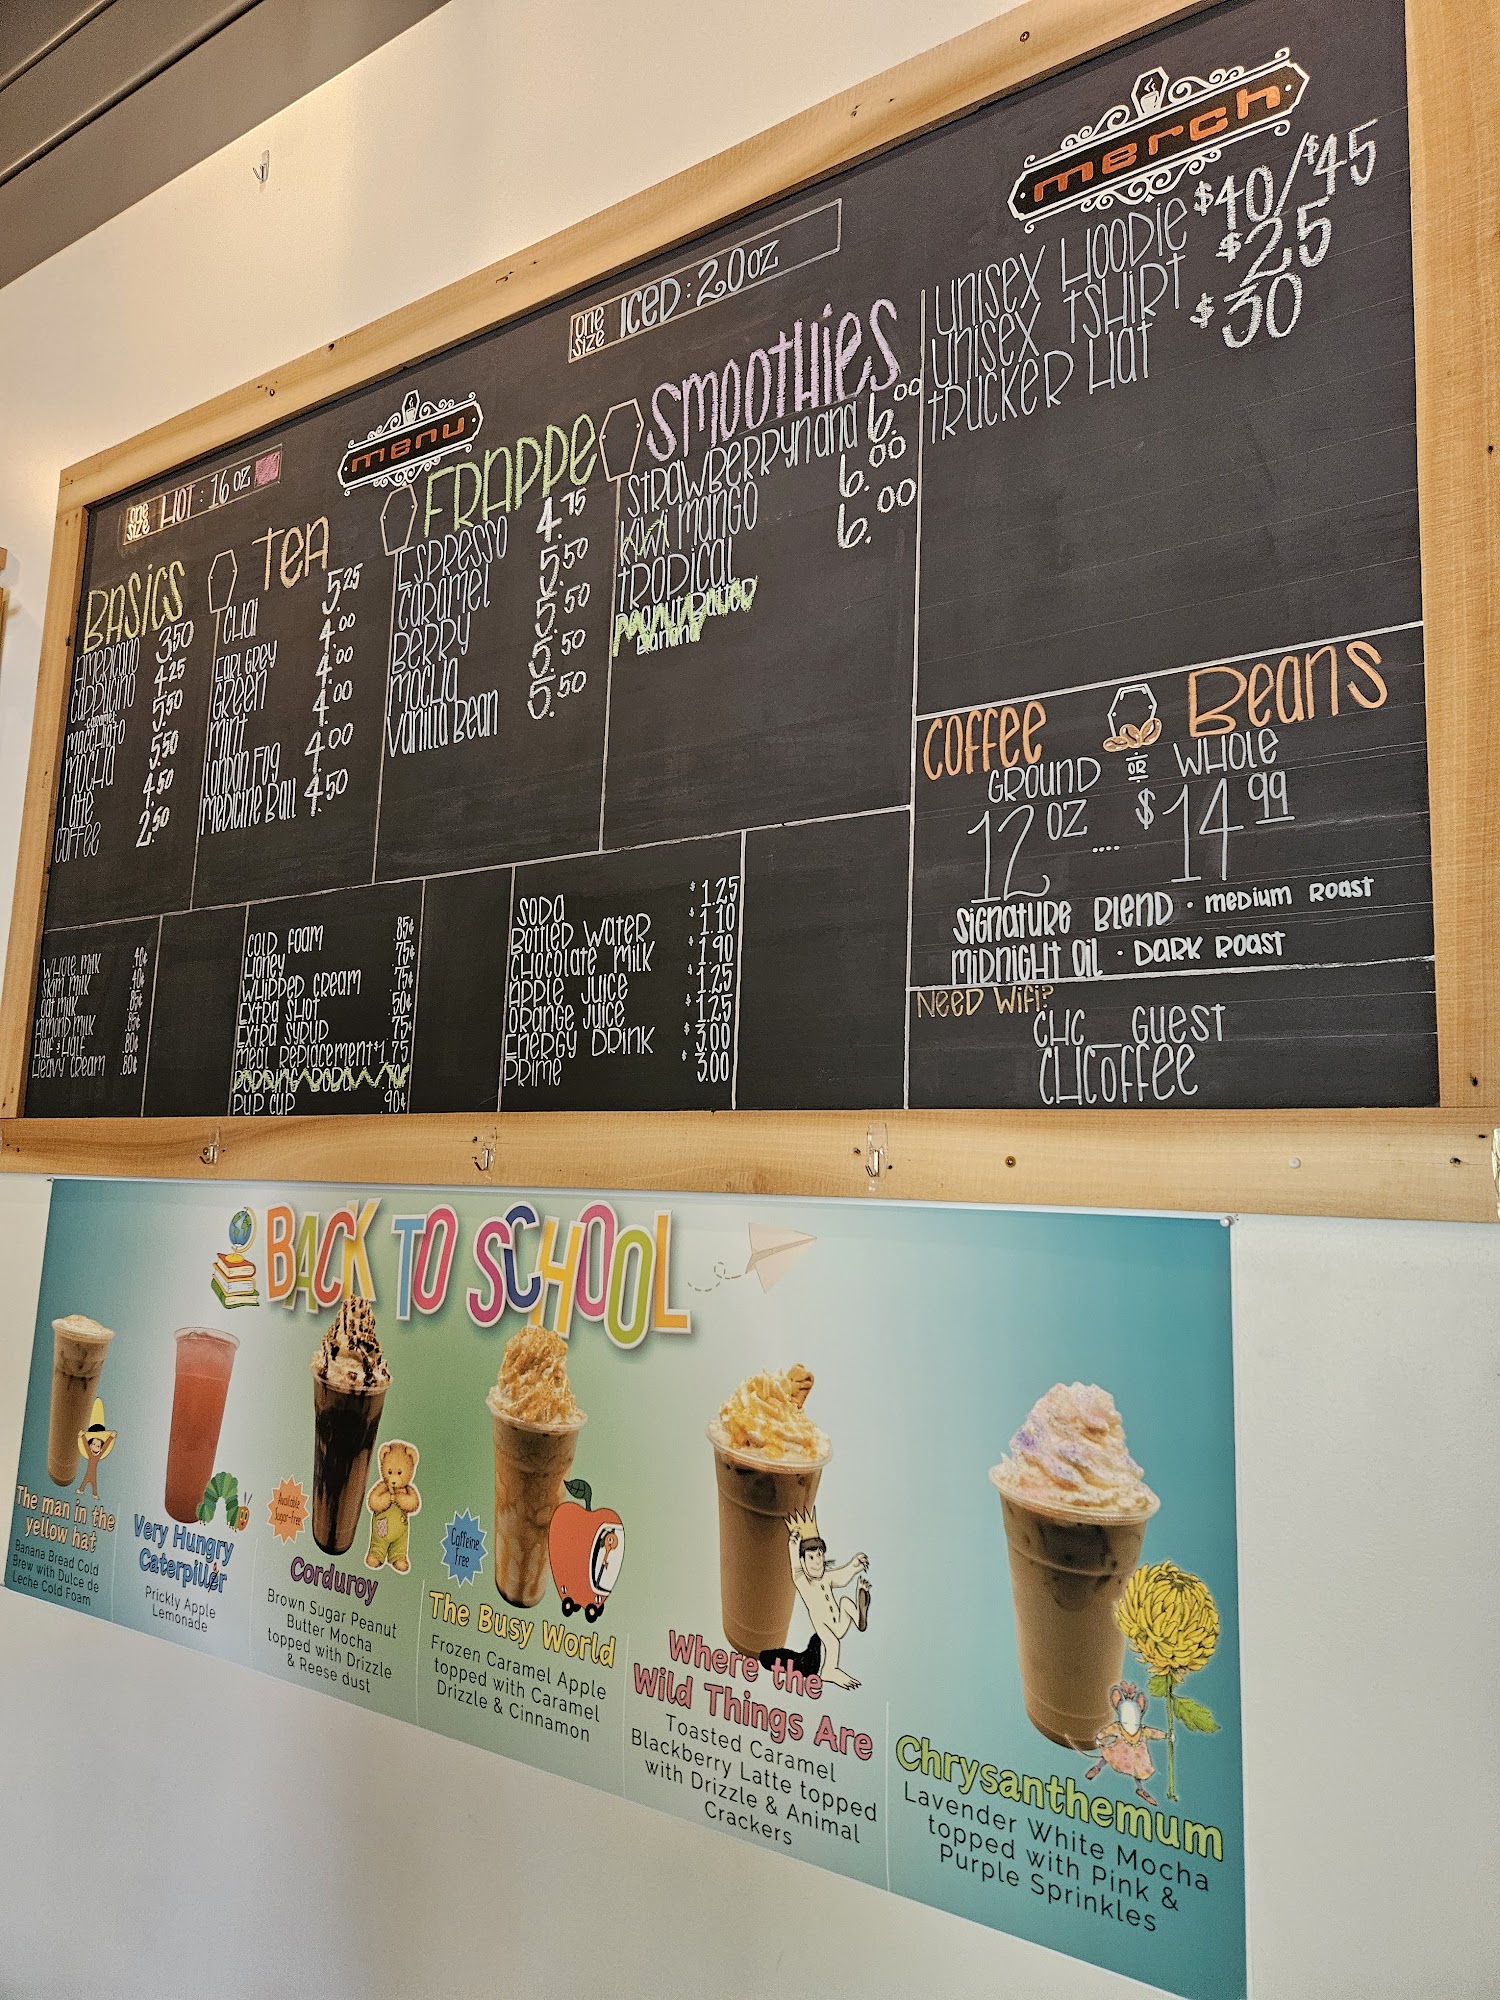 one size HOT: 16 oz
menu
one size ICED: 20 oz
merch
UNISEX HOODIE $40/$45
UNISEX TSHIRT $25
TRUCKER HAT $30
BASICS
AMERICANO 3.50
CAPPUCINO 4.25
caramel
MACCHIATO 5.50
MOCHA 5.50
LATTE 4.50
COFFEE 2.50
TEA
CHAI 5.25
EARL GREY 4.00
GREEN 4.00
MINT 4.00
LONDON FOG 4.00
MEDICINE BALL 4.50
FRAPPE
ESPRESSO 4.75
CARAMEL 5.50
BERRY 5.50
MOCHA 5.50
VANILLA BEAN 5.50
SMOOTHIES
STRAWBERRYNANA 6.00
KIWI MANGO 6.00
TROPICAL 6.00
Peanut Butter
Banana
WHOLE MILK 40¢
SKIM MILK 40¢
OAT MILK .85¢
ALMOND MILK .85¢
HALF & HALF .80¢
HEAVY CREAM .80¢
COLD FOAM .85¢
HONEY .75¢
WHIPPED CREAM .75¢
EXTRA SHOT .50¢
EXTRA SYRUP .75¢
MEAL REPLACEMENT $1.75
POPPING BOBA
PUP CUP .90¢
SODA $1.25
BOTTLED WATER $1.10
CHOCOLATE MILK $1.90
APPLE JUICE $1.25
ORANGE JUICE $1.25
ENERGY DRINK $3.00
PRIME $3.00
COFFEE BEANS
GROUND OR WHOLE
12 OZ .... $14.99
SIGNATURE BLEND · MEDIUM ROAST
MIDNIGHT OIL · DARK ROAST
NEED WIFI?
CHC_GUEST
CHCOFFEE
BACK TO SCHOOL
The man in the
yellow hat
Banana Bread Cold
Brew with Dulce de
Leche Cold Foam
Very Hungry
Caterpiller
Prickly Apple
Lemonade
Available
Sugar-free
Corduroy
Brown Sugar Peanut
Butter Mocha
topped with Drizzle
& Reese dust
Caffeine
Free
The Busy World
Frozen Caramel Apple
topped with Caramel
Drizzle & Cinnamon
Where the
Wild Things Are
Toasted Caramel
Blackberry Latte topped
with Drizzle & Animal
Crackers
Chrysanthemum
Lavender White Mocha
topped with Pink &
Purple Sprinkles